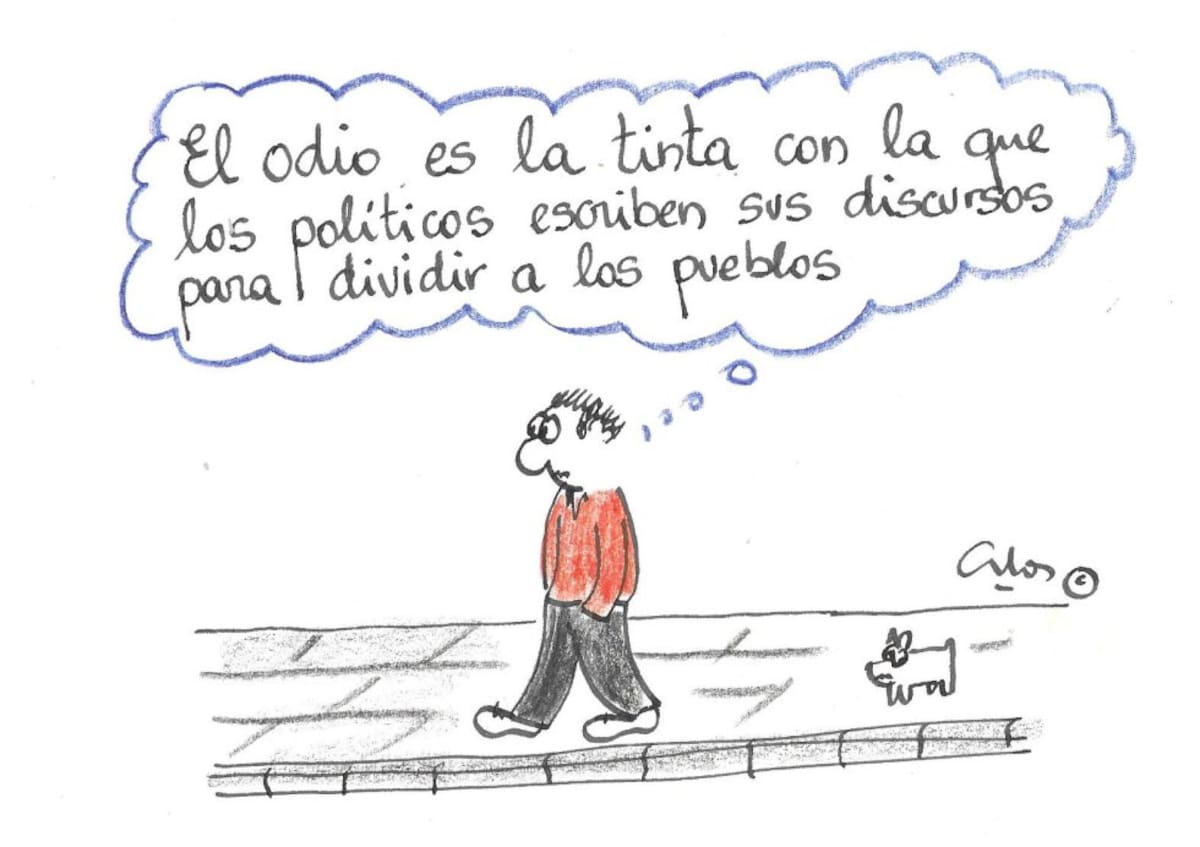 El odio es la tinta con la que
los políticos escriben sus discursos
para dividir a los pueblos
©